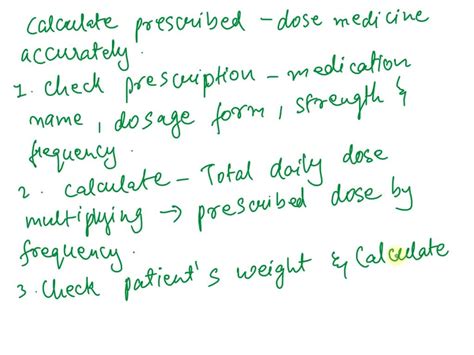 Calculate prescribed - dose medicine
accurately.
1. Check prescription - medication
name, dosage form, strength &
frequency.
2. Calculate - Total daily dose
multiplying → prescribed dose by
frequency.
3. Check patient's weight & Calculate